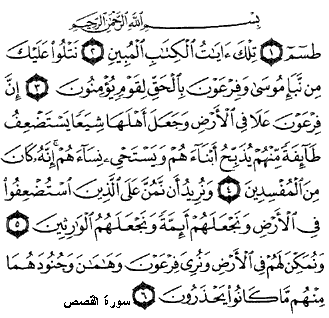 بِسْمِ اللَّهِ الرَّحْمَٰنِ الرَّحِيمِ
طسٓمٓ ۝١ تِلْكَ ءَايَٰتُ الْكِتَٰبِ الْمُبِينِ ۝٢ نَتْلُوا۟ عَلَيْكَ
مِن نَّبَإِ مُوسَىٰ وَفِرْعَوْنَ بِالْحَقِّ لِقَوْمٍ يُؤْمِنُونَ ۝٣ إِنَّ
فِرْعَوْنَ عَلَا فِي الْأَرْضِ وَجَعَلَ أَهْلَهَا شِيَعًا يَسْتَضْعِفُ
طَآئِفَةً مِّنْهُمْ يُذَبِّحُ أَبْنَآءَهُمْ وَيَسْتَحْيِۦ نِسَآءَهُمْ ۚ إِنَّهُۥ كَانَ
مِنَ الْمُفْسِدِينَ ۝٤ وَنُرِيدُ أَن نَّمُنَّ عَلَى الَّذِينَ اسْتُضْعِفُوا۟
فِي الْأَرْضِ وَنَجْعَلَهُمْ أَئِمَّةً وَنَجْعَلَهُمُ الْوَٰرِثِينَ ۝٥
وَنُمَكِّنَ لَهُمْ فِي الْأَرْضِ وَنُرِيَ فِرْعَوْنَ وَهَٰمَٰنَ وَجُنُودَهُمَا
مِنْهُم مَّا كَانُوا۟ يَحْذَرُونَ ۝٦ سورة القصص